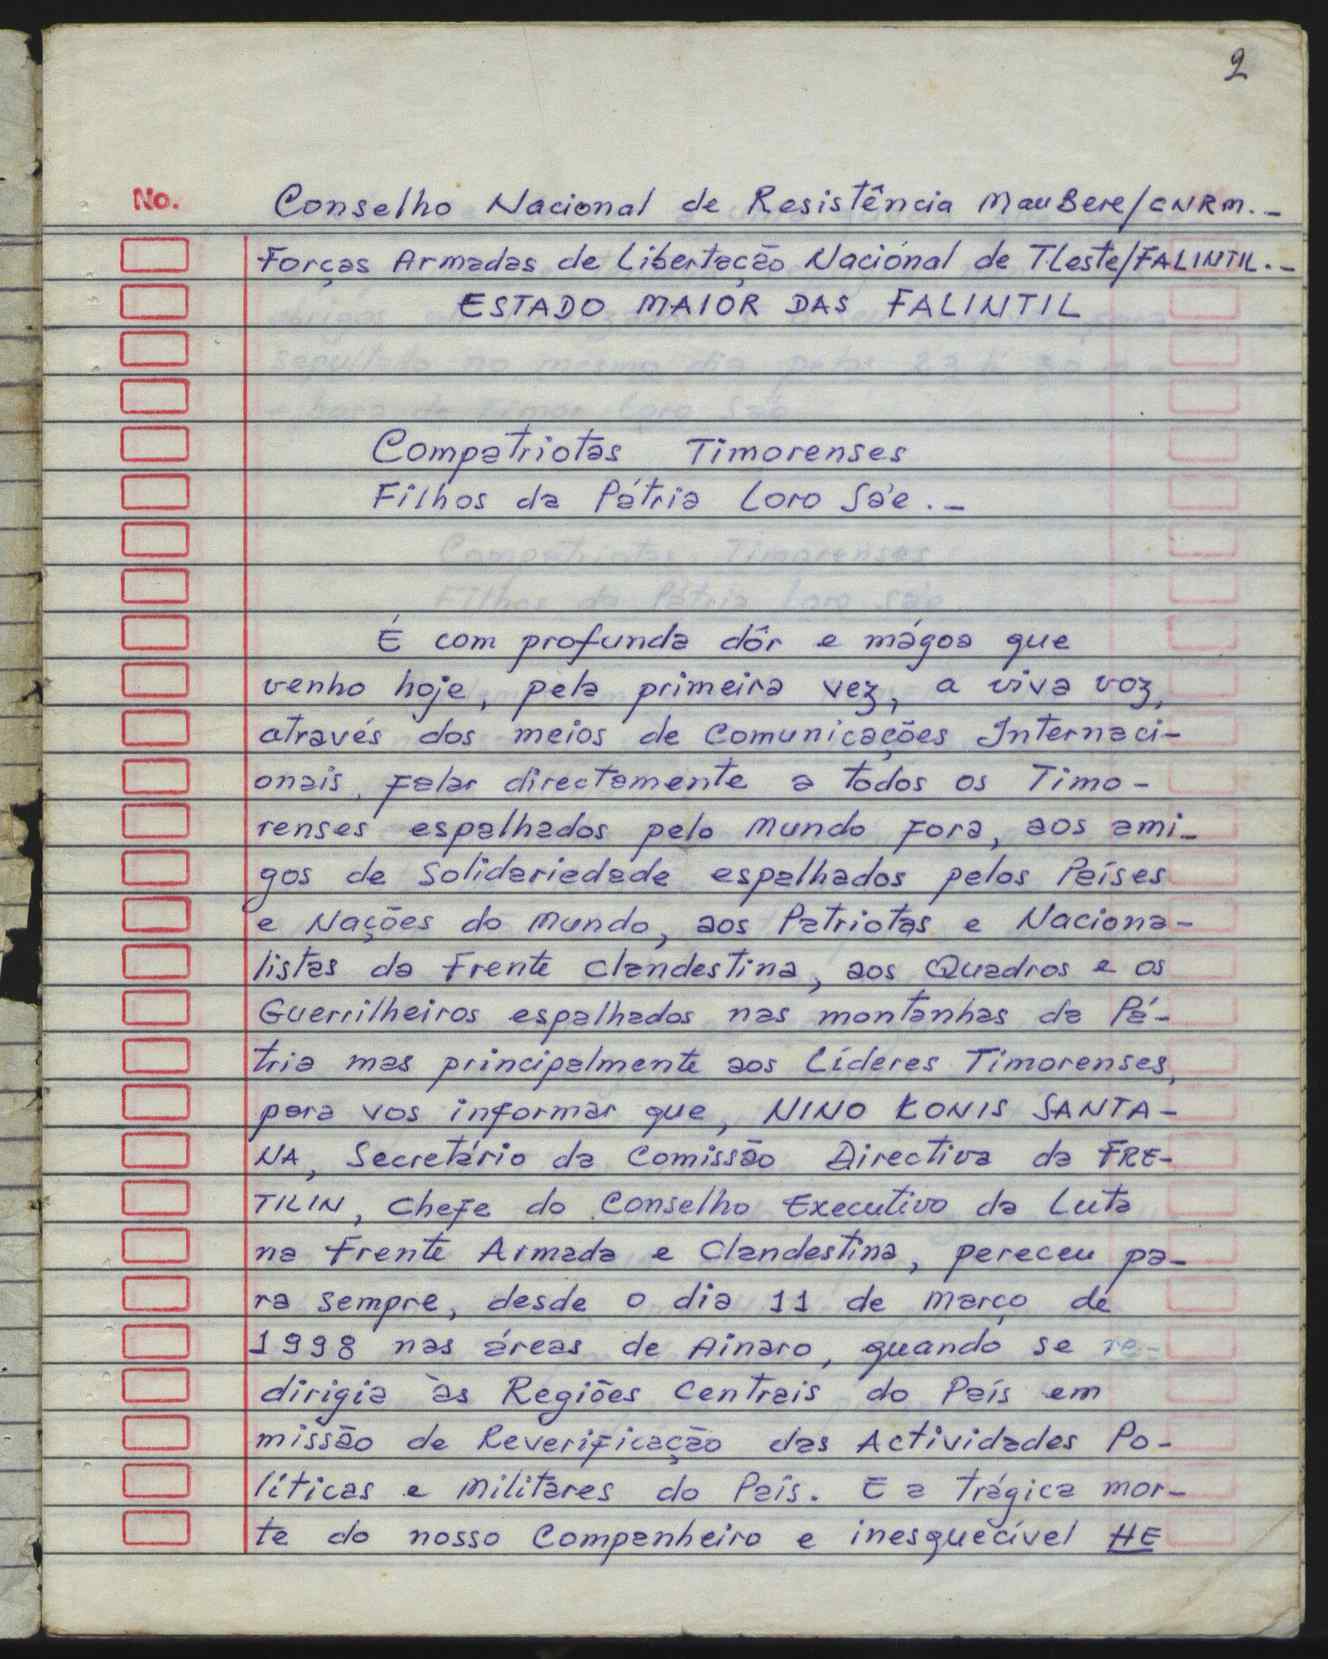 2
No. Conselho Nacional de Resistência MauBere/CNRM._
Forças Armadas de Libertação Nacional de TLeste/FALINTIL._
ESTADO MAIOR DAS FALINTIL
Compatriotas Timorenses
Filhos da Pátria Loro Sa'e._
É com profunda dôr e mágoa que
venho hoje, pela primeira vez, a viva voz,
através dos meios de Comunicações Internaci-
onais, falar directamente a todos os Timo-
renses espalhados pelo Mundo fora, aos ami-
gos de Solidariedade espalhados pelos Países
e Nações do Mundo, aos Patriotas e Naciona-
listas da Frente Clandestina, aos Quadros e os
Guerrilheiros espalhados nas montanhas da Pá-
tria mas principalmente aos Líderes Timorenses,
para vos informar que, NINO KONIS SANTA-
NA, Secretário da Comissão Directiva da FRE-
TILIN, Chefe do Conselho Executivo da Luta
na Frente Armada e Clandestina, pereceu pa-
ra sempre, desde o dia 11 de Março de
1998 nas áreas de Ainaro, quando se re-
dirigia às Regiões Centrais do País em
missão de Reverificação das Actividades Po-
líticas e Militares do País. E a trágica mor-
te do nosso Companheiro e inesquecível HE